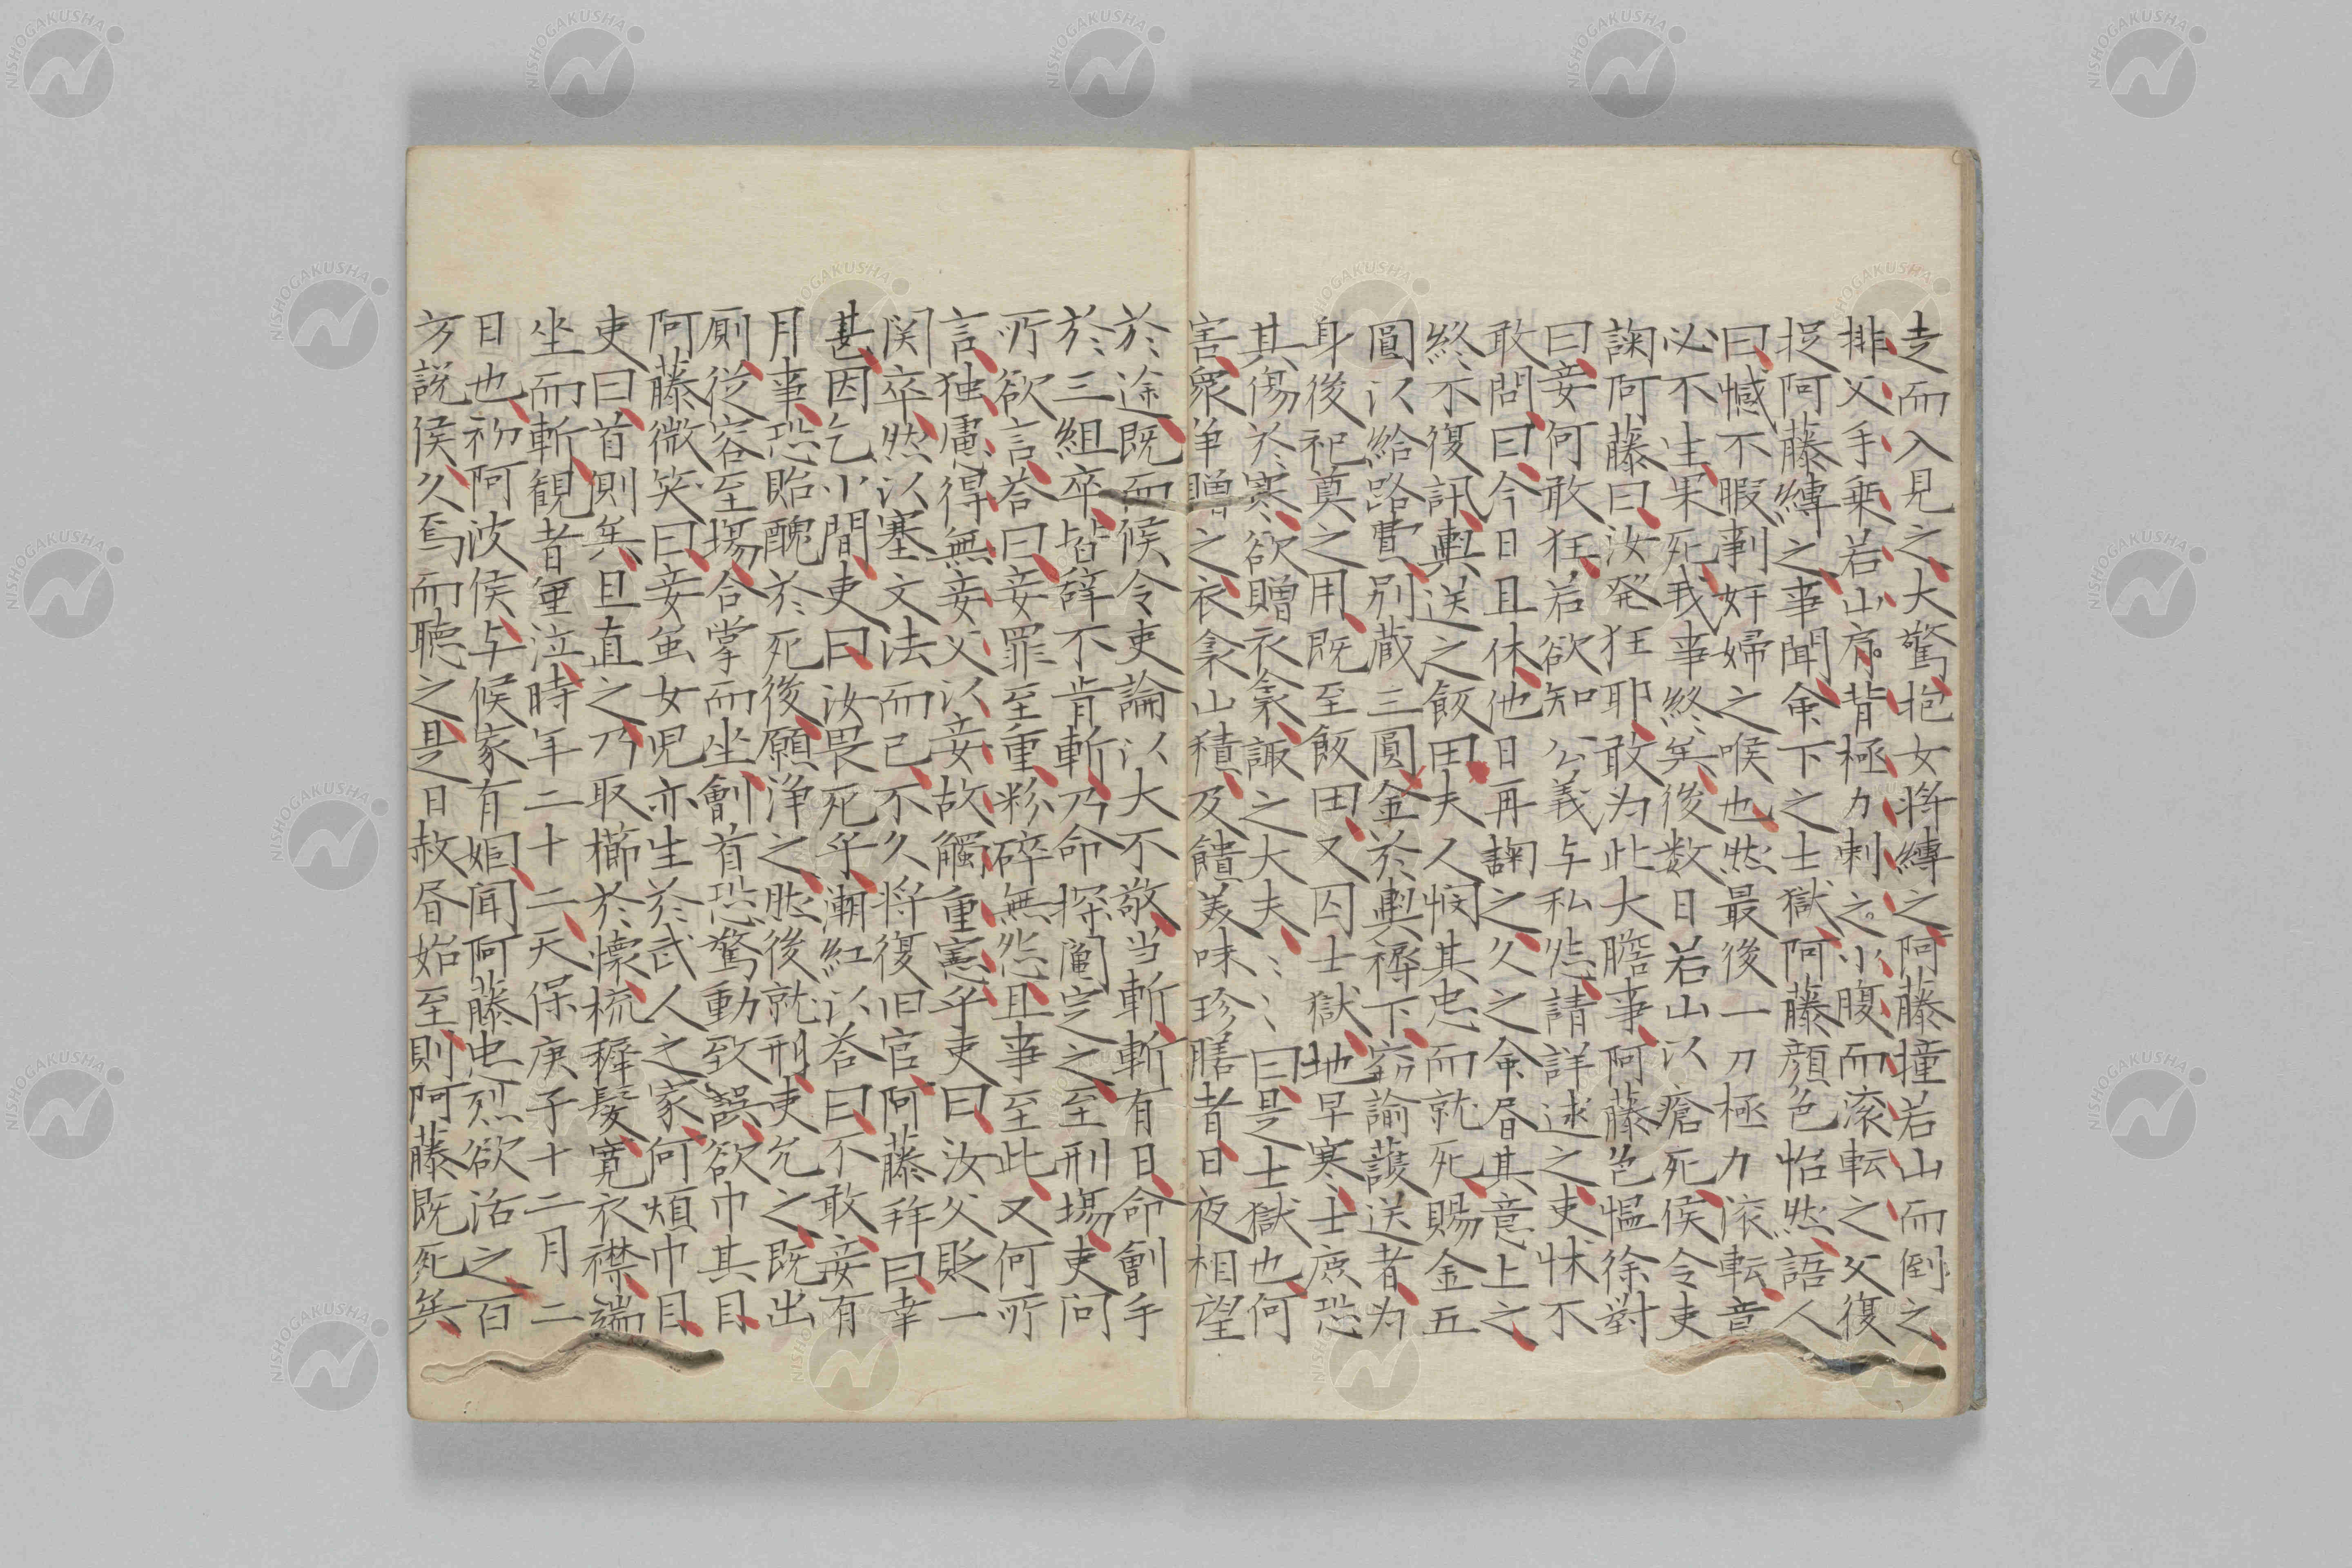 走而入見之大驚抱女将縛之阿藤撞若山而倒之
排父手乗若山肩背極力刺之小腹而滚転之父復
捉阿藤縛之事聞命下之士獄阿藤顔色怡然語人
曰憾不暇剚奸婦之喉也然最後一刀極力滚転意
必不生果死我事終矣後数日若山以瘡死侯令吏
諊阿藤曰汝発狂耶敢为此大膽事阿藤色愠徐對
曰妾何敢狂若欲知公義与私怨請詳述之吏怵不
敢問曰今日且休他日再諊之久之命昏其意上之
終不復訊輿送之飯田夫人憫其忠而就死賜金五
圓以給路費別蔵三圓金於輿褥下窃諭護送者为
身後祀奠之用既至飯田又囚士獄地早寒士庶恐
其傷於寒欲贈衣衾諏之大夫大夫曰是士獄也何
害衆争贈之衣衾山積及饋美味珍膳者日夜相望
於途既而侯令吏論以大不敬当斬斬有日命劊手
於三組卒皆辞不肯斬乃命探鬮定之至刑場吏问
所欲言答曰妾罪至重粉碎無怨且事至此又何所
言独慮得無妾父以妾故觸重憲乎吏曰汝父貶一
関卒然以塞文法而已不久将復旧官阿藤拜曰幸
甚因乞小間吏曰汝畏死乎潮紅以答曰不敢妾有
月事恐貽醜於死後願浄之然後就刑吏允之既出
厠従容至場合掌而坐劊首恐驚動致誤欲巾其目
阿藤微笑曰妾虽女児亦生於武人之家何煩巾目
吏曰首則矣且直之乃取櫛於懐梳穉髪寛衣襟端
坐而斬観者垂泣時年二十二天保庚子十二月二
日也初阿波侯与候家有姻聞阿藤忠烈欲活之百
方説侯久焉而聴之是日赦昏始至則阿藤既死矣